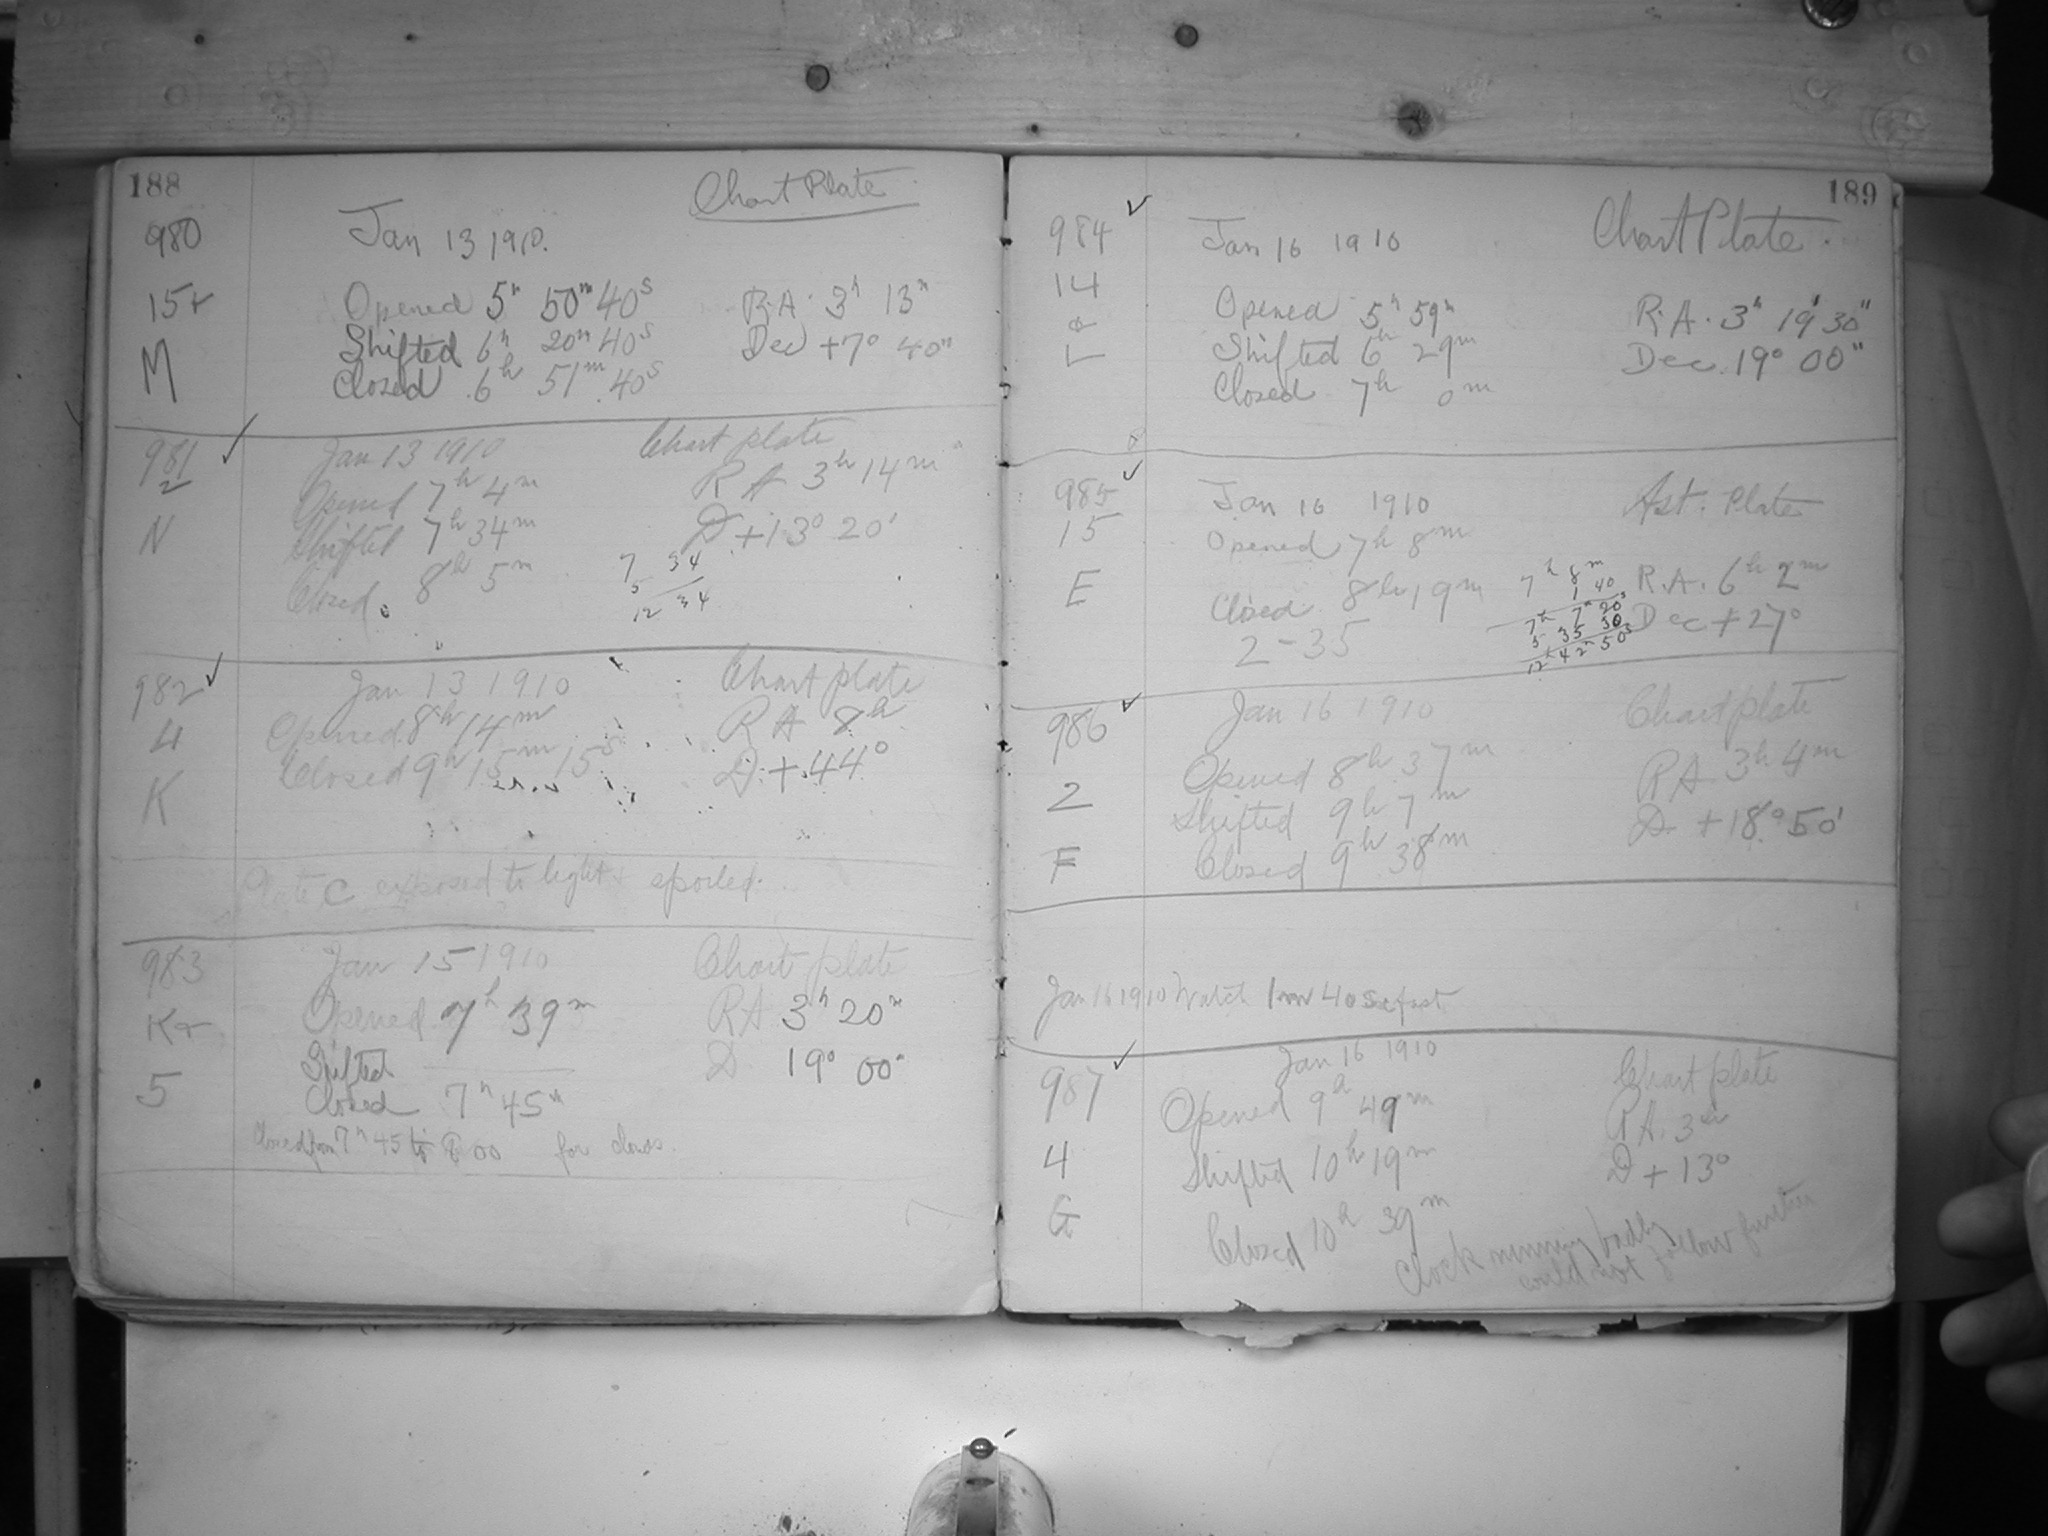 188
Chart Plate
980
Jan 13 1910.
15+
Opened 5h 50m 40s R.A. 3h 13m
Shifted 6h 20m 40s Dec +7° 40"
M
Closed 6h 51m 40s
981 ✓ Jan 13 1910 Chart plate
2
Opened 7h 4m RA 3h 14m
N
Shifted 7h 34m D +13° 20'
Closed. 8h 5m
7 34
5
12 34
982 ✓ Jan 13 1910 Chart plate
4
Opened 8h 14m RA 8h
Closed 9h 15m 15s D. + 44°
K
Plate C exposed to light & spoiled.
983 Jan 15 1910 Chart plate
Opened 7h 39m RA 3h 20m
Shifted D 19° 00"
5
Closed 7h 45m
Closed from 7h 45 to 8 00 for clouds.
189
984 ✓ Jan 16 1910 Chart Plate.
14
Opened 5h 59m R.A. 3h 19' 30"
&
Shifted 6h 29m Dec. 19° 00"
L
Closed 7h 0m
985 ✓ Jan 16 1910 Ast. Plate
15
Opened 7h 8m
E
Closed 8h 19m R.A. 6h 2m
2-35 Dec +27°
7h 8m
1 40
7h 7m 20s
5 35 30
12h 42m 50s
986 ✓ Jan 16 1910 Chart plate
Opened 8h 37m RA 3h 4m
2
Shifted 9h 7m D. +18° 50'
F
Closed 9h 38m
Jan 16 1910 Watch 1m 40 sec fast
987 ✓ Jan 16 1910 Chart plate
Opened 9h 49m RA. 3h
4
Shifted 10h 19m D + 13°
G
Closed 10h 39m
Clock running badly
could not follow